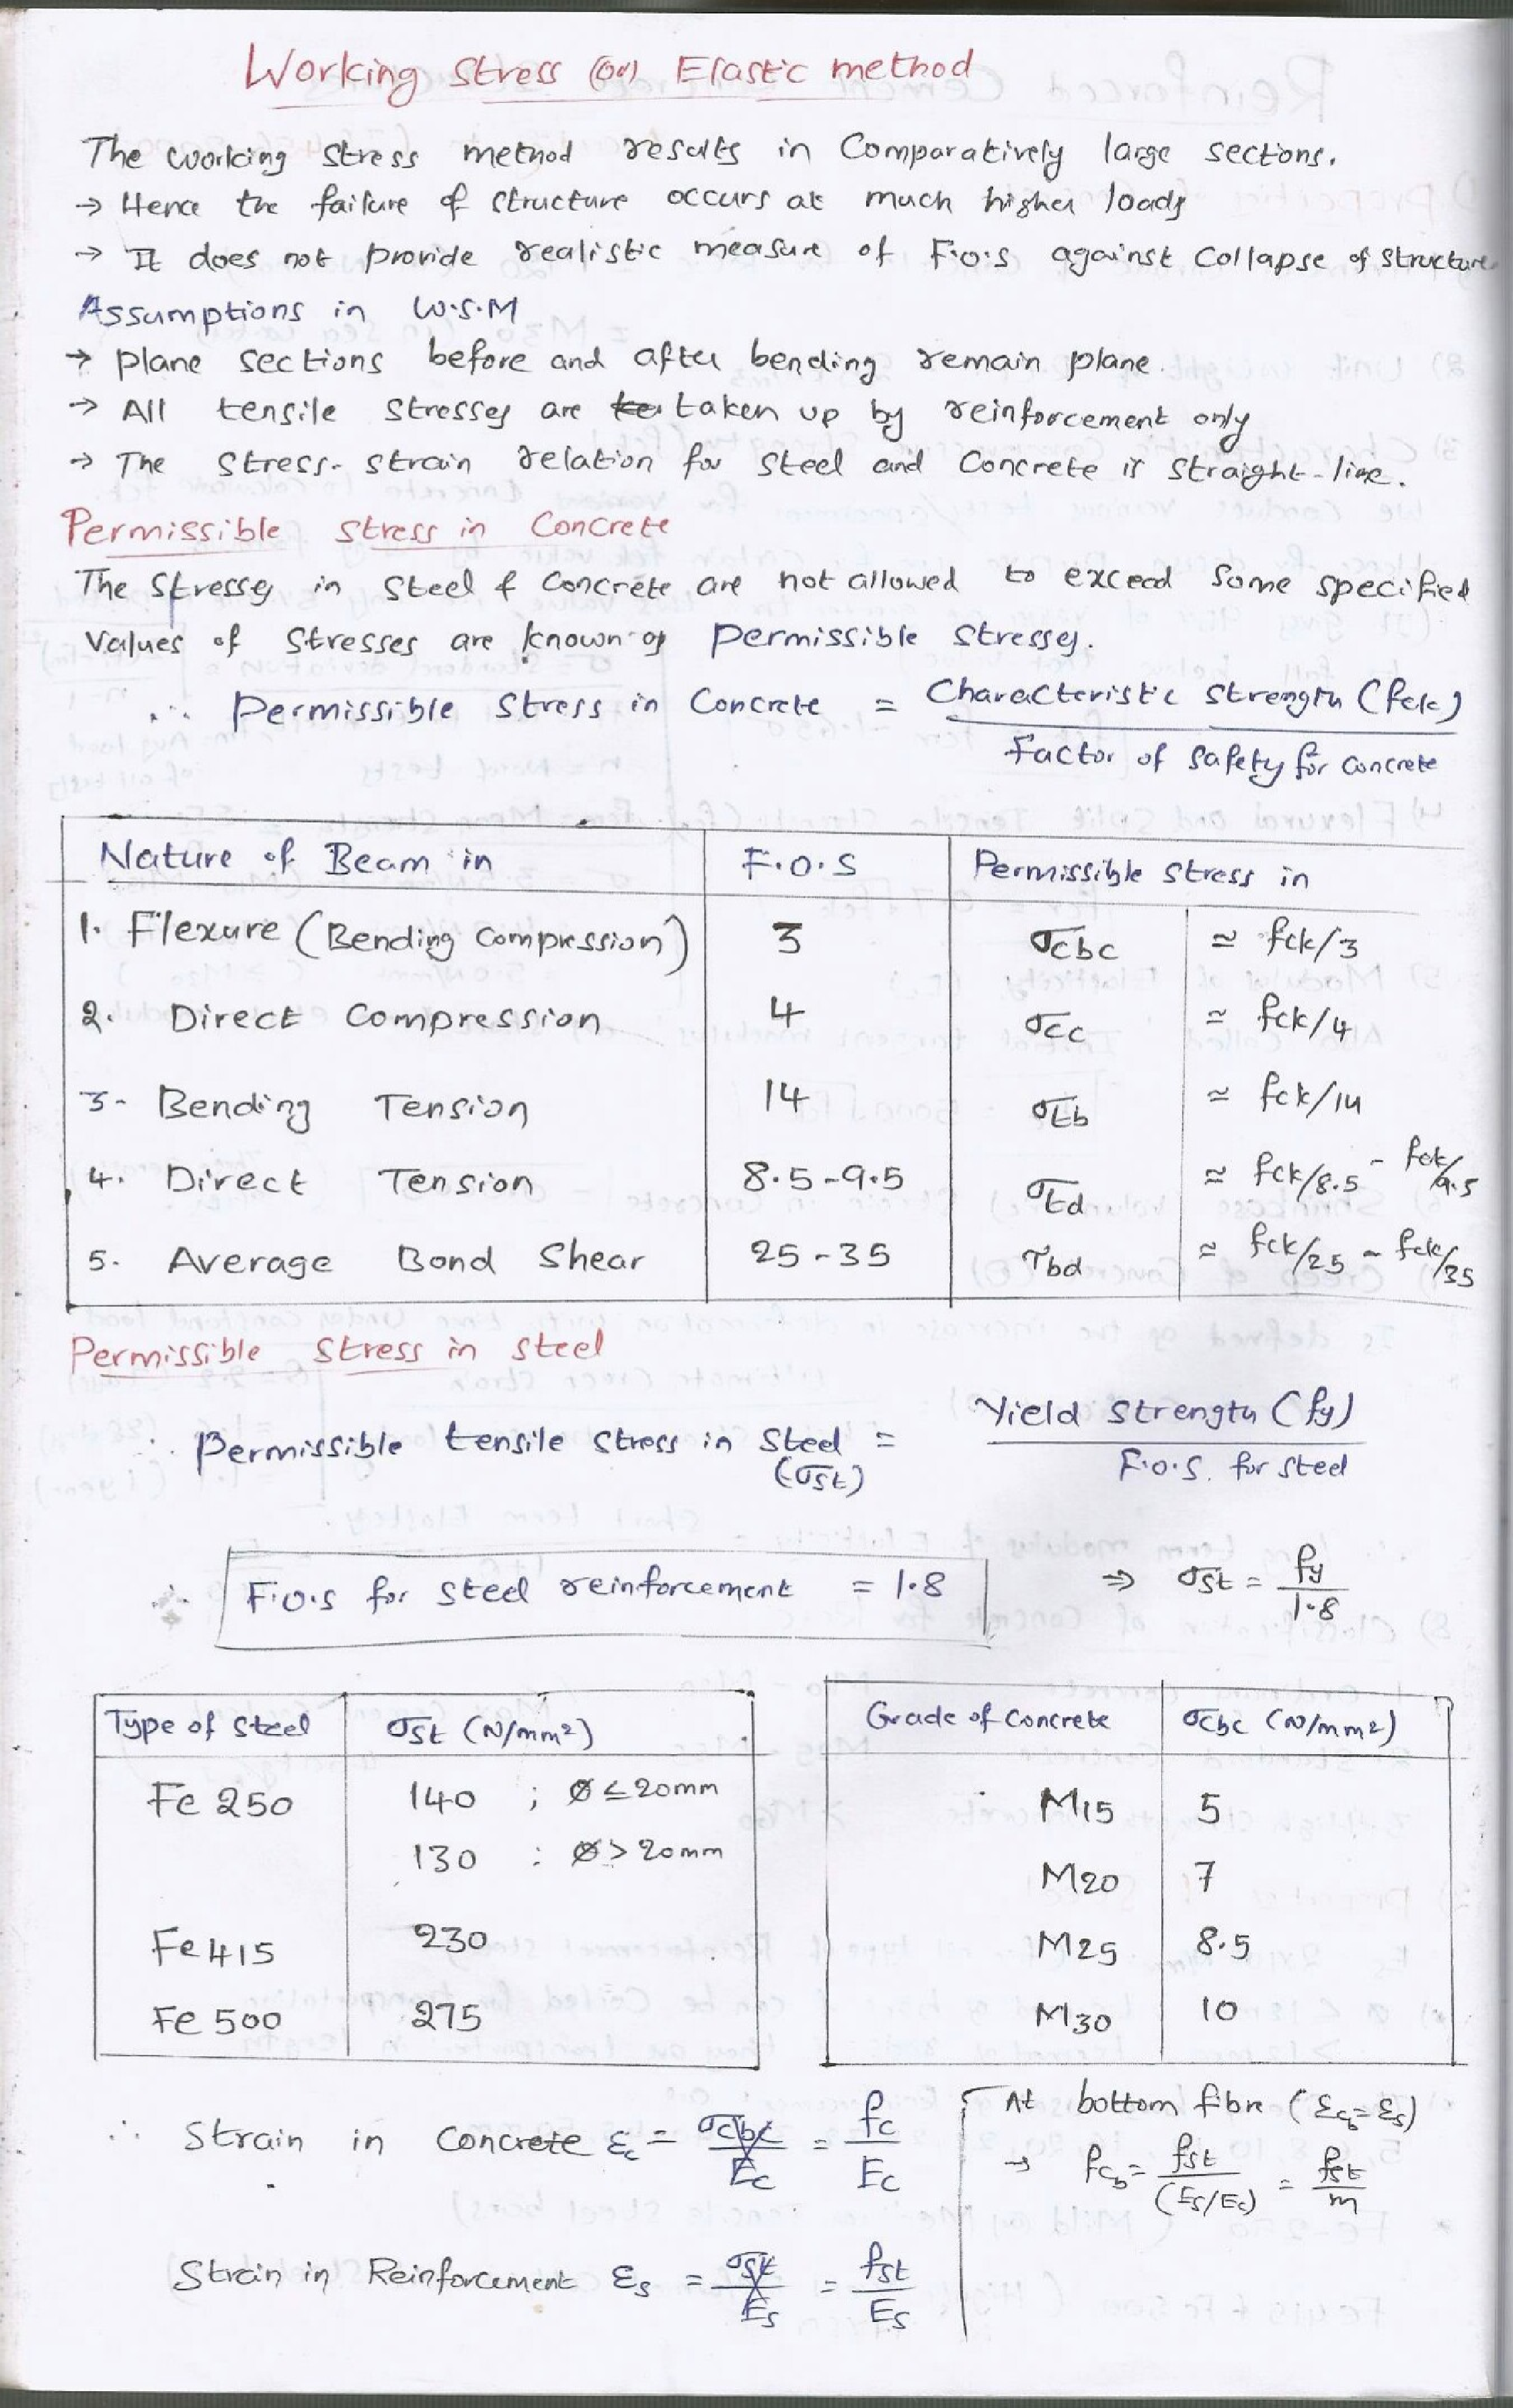 Working Stress (or) Elastic method
The working stress method results in Comparatively large sections.
→ Hence the failure of structure occurs at much higher loads
→ It does not provide realistic measure of F.O.S against collapse of structure
Assumptions in W.S.M
→ plane sections before and after bending remain plane.
→ All tensile stresses are taken up by reinforcement only
→ The stress-strain relation for steel and concrete is straight-line.
Permissible stress in Concrete
The Stresses in steel & concrete are not allowed to exceed some specified
values of stresses are known as permissible stresses.
∴ Permissible stress in Concrete = Characteristic Strength (fck) / Factor of safety for concrete
Nature of Beam in | F.O.S | Permissible stress in
1. Flexure (Bending compression) | 3 | σcbc | ≃ fck/3
2. Direct Compression | 4 | σcc | ≃ fck/4
3- Bending Tension | 14 | σtb | ≃ fck/14
4. Direct Tension | 8.5-9.5 | σtd | ≃ fck/8.5 - fck/9.5
5. Average Bond Shear | 25-35 | τbd | ≃ fck/25 - fck/35
Permissible stress in steel
∴ Permissible tensile stress in steel (σst) = Yield strength (fy) / F.O.S. for steel
∴ F.O.S for steel reinforcement = 1.8 ⇒ σst = fy/1.8
Type of steel | σst (N/mm²)
Fe 250 | 140 ; Ø ≤ 20mm
130 : Ø > 20mm
Fe 415 | 230
Fe 500 | 275
Grade of concrete | σcbc (N/mm2)
M15 | 5
M20 | 7
M25 | 8.5
M30 | 10
∴ Strain in concrete εc = σcbc/Ec = fc/Ec
Strain in Reinforcement εs = σst/Es = fst/Es
At bottom fibre (εcb=εs)
→ fcb = fst/(Es/Ec) = fst/m